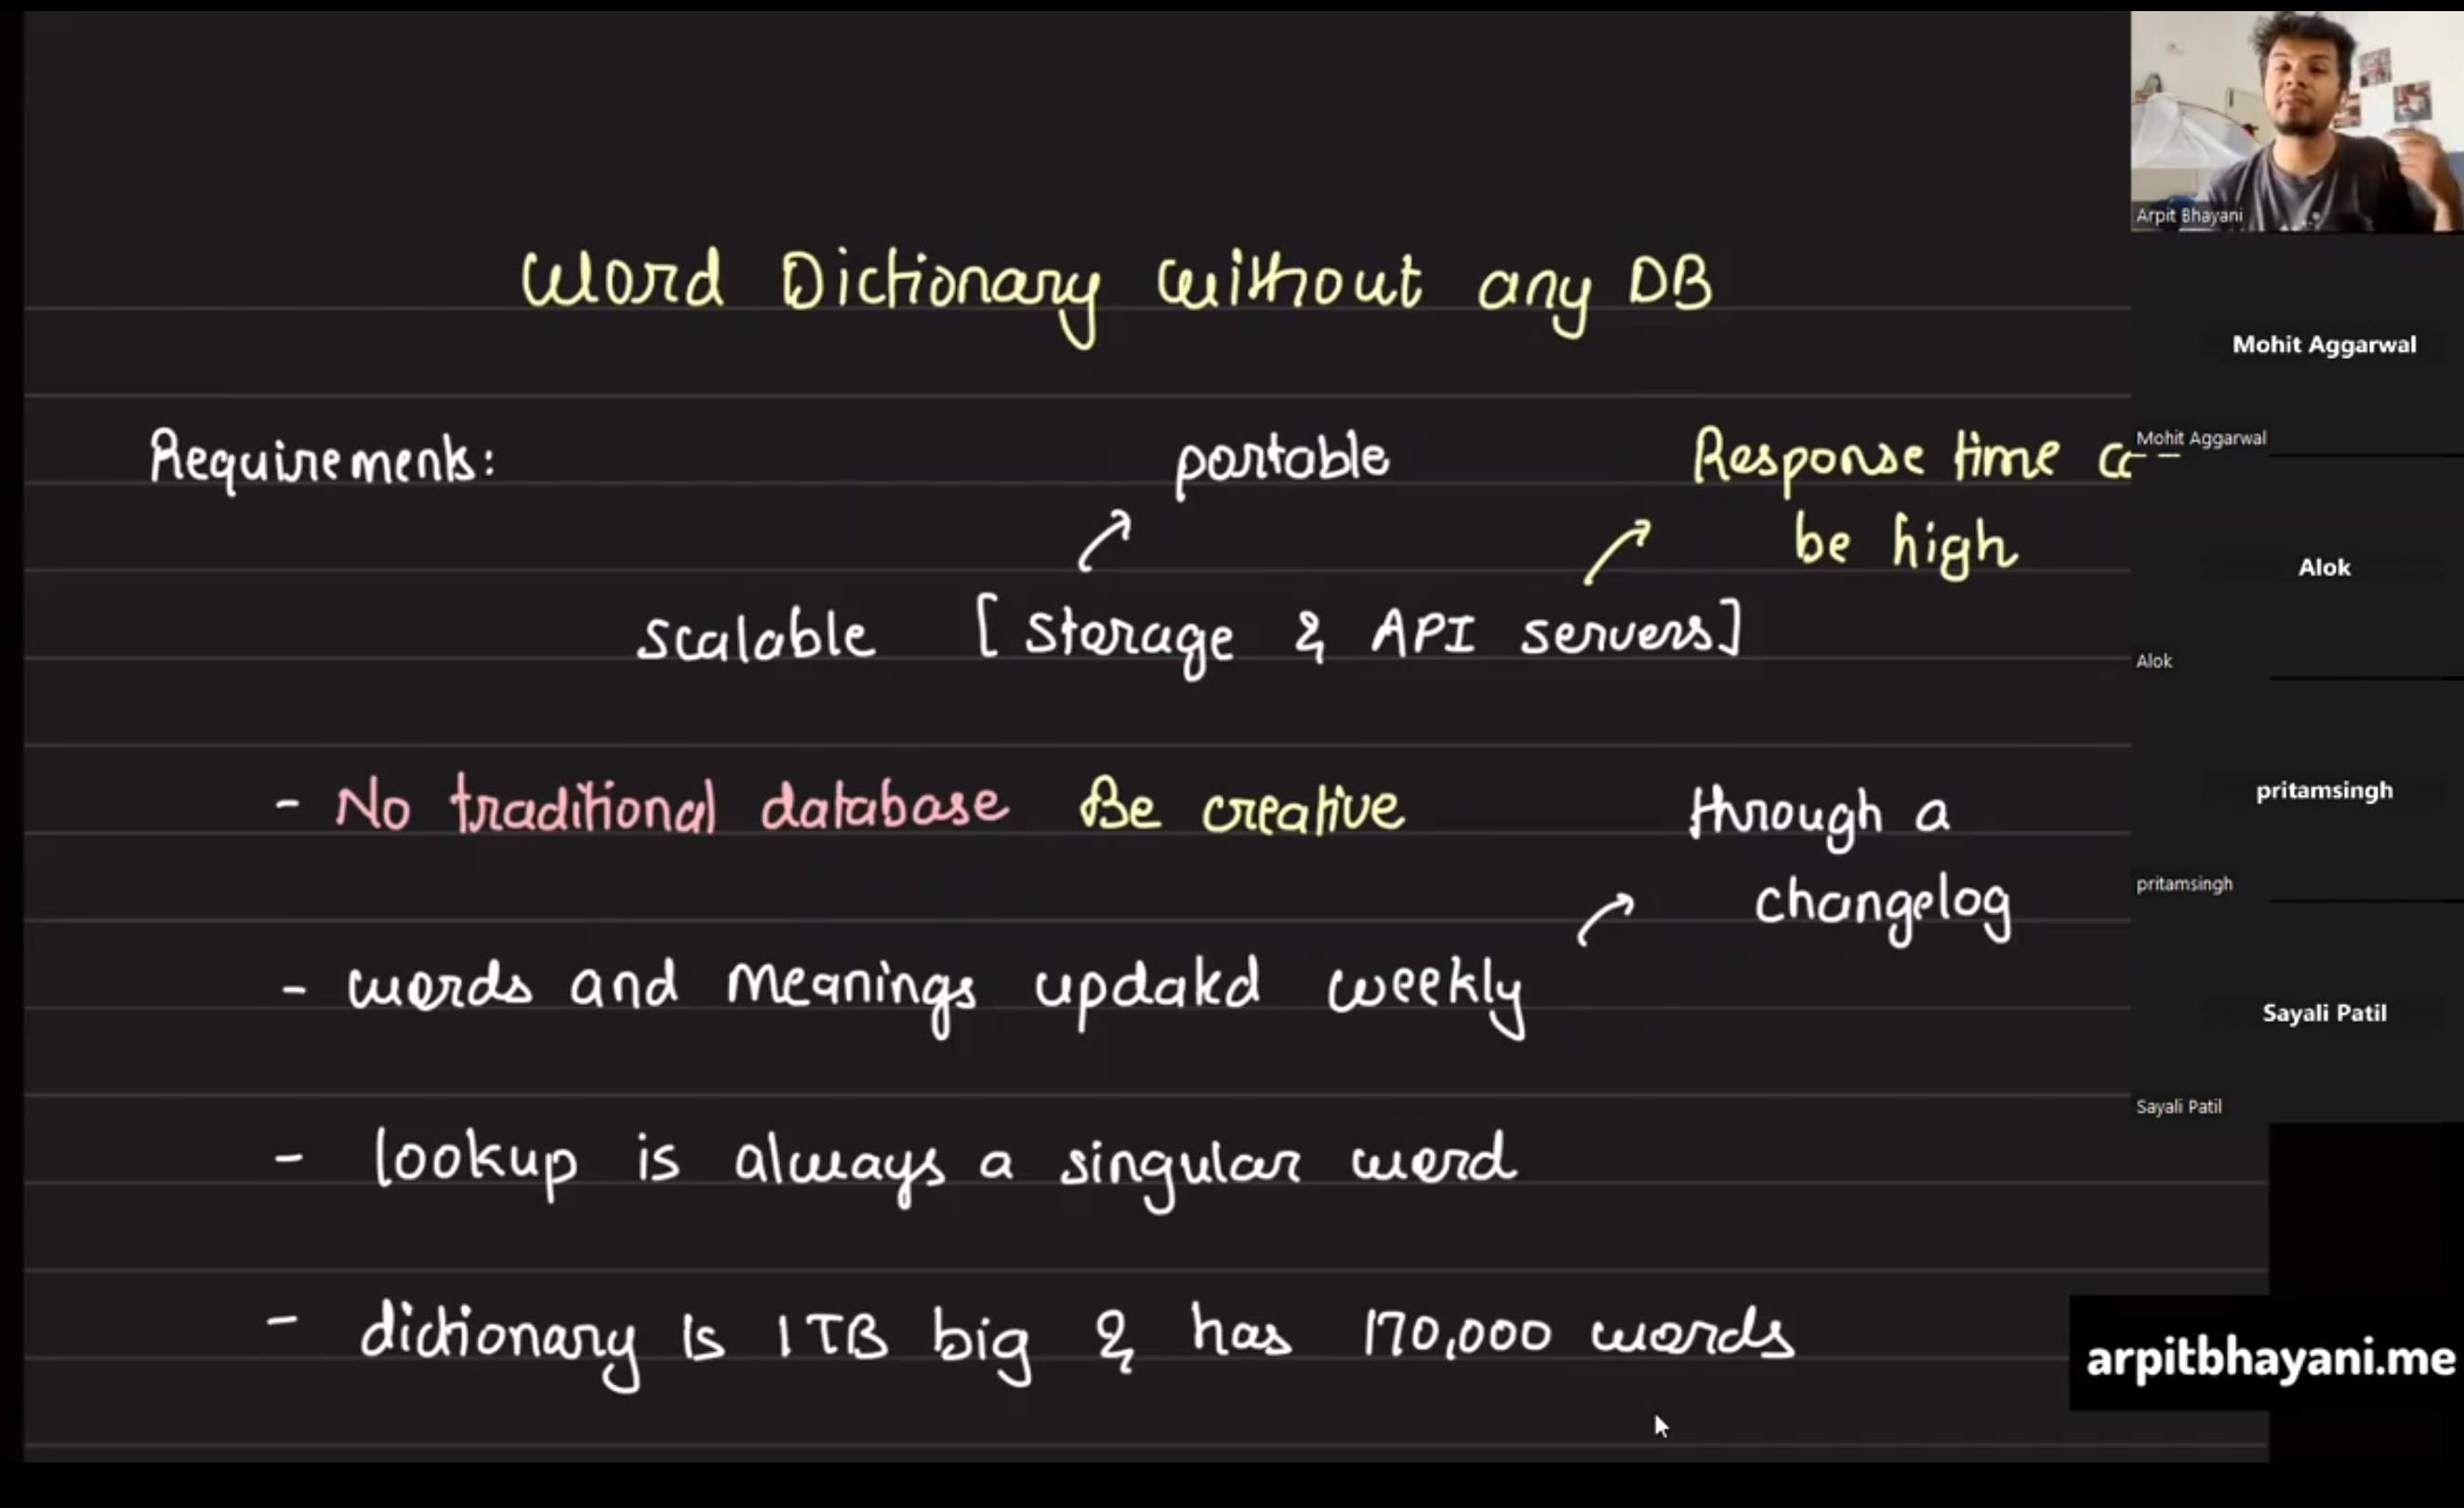 Word Dictionary without any DB
Requirements:
portable
Response time
be high
scalable [storage & API servers]
- No traditional database Be creative
through a
changelog
- words and meanings updated weekly
- lookup is always a singular word
- dictionary is 1TB big & has 170,000 words
Arpit Bhayani
Mohit Aggarwal
Mohit Aggarwal
Alok
Alok
pritamsingh
pritamsingh
Sayali Patil
Sayali Patil
arpitbhayani.me